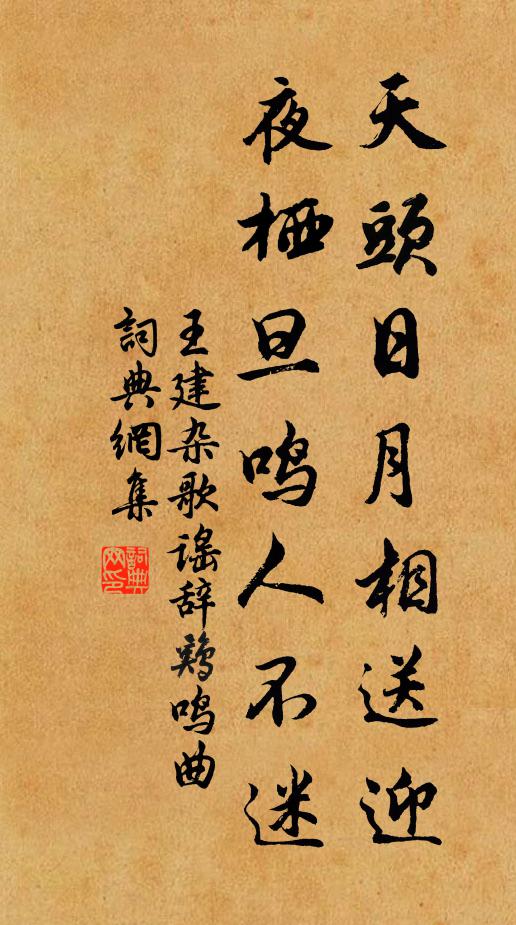 天頭日月相送迎
夜栖旦鸣人不迷
王建杂歌谣辞鷄鸣曲
詞典網集
詞典网印